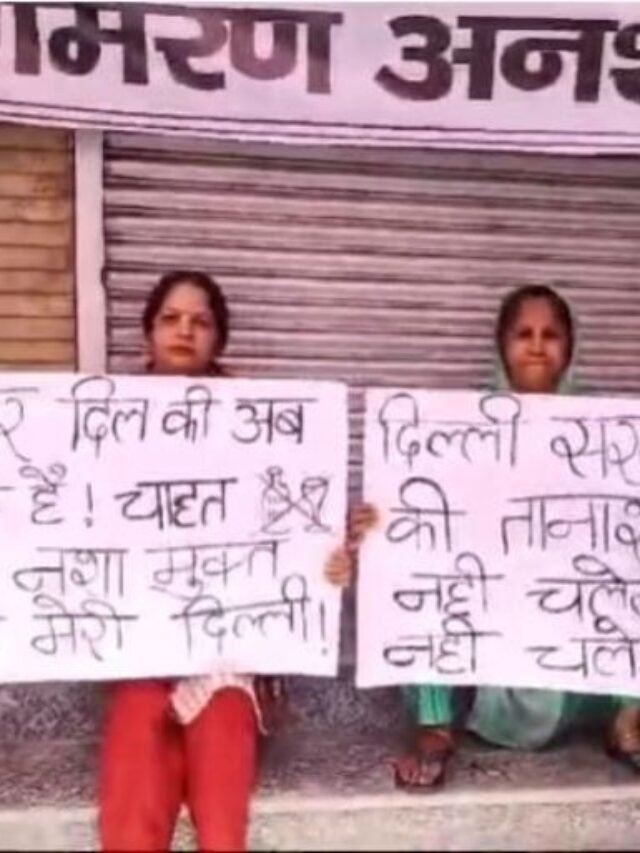 मरण अनश
दिल की अब
है! चाहत
नशा मुक्त
मेरी दिल्ली!
दिल्ली सर
की तानाश
नही चले
नही चले